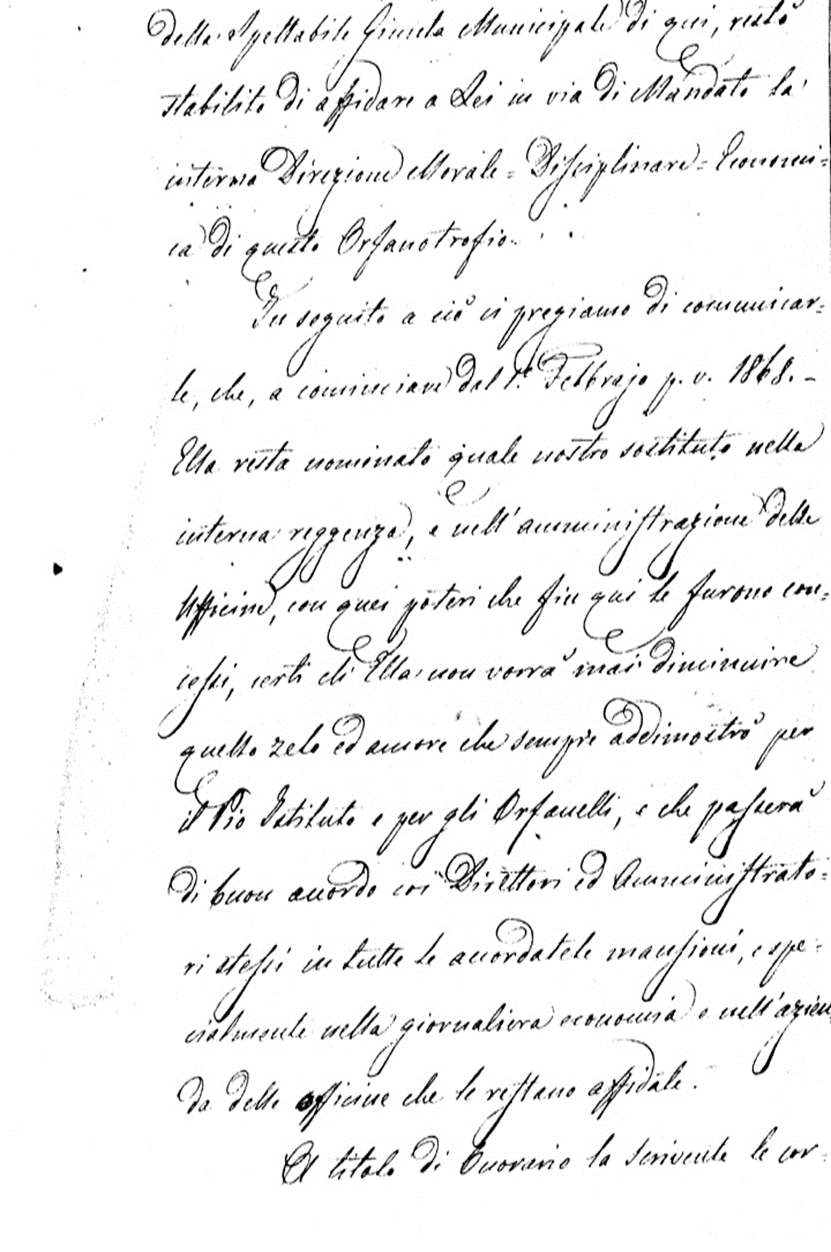 della Spettabile Giunta Municipale di qui, restò
stabilito di affidare a Lei in via di Mandato la
interna Direzione Morale = Disciplinare = Economi=
ca di questo Orfanotrofio.
In seguito a ciò ci pregiamo di comunicar=
le, che, a cominciare dal 1.º Febbrajo p. v. 1868. -
Ella resta nominato quale nostro sostituto nella
interna reggenza, e nell'amministrazione delle
Officine, con quei poteri che fin qui le furono con=
cessi, certi ch'Ella non vorrà mai diminuire
quello zelo ed amore che sempre addimostrò per
il Pio Istituto e per gli Orfanelli, e che passerà
di buon accordo coi Direttori ed Amministrato=
ri stessi in tutte le accordatele mansioni, e spe=
cialmente nella giornaliera economia e nell'azien
da delle officine che le restano affidate.
A titolo di Onorario la scrivente le cor=